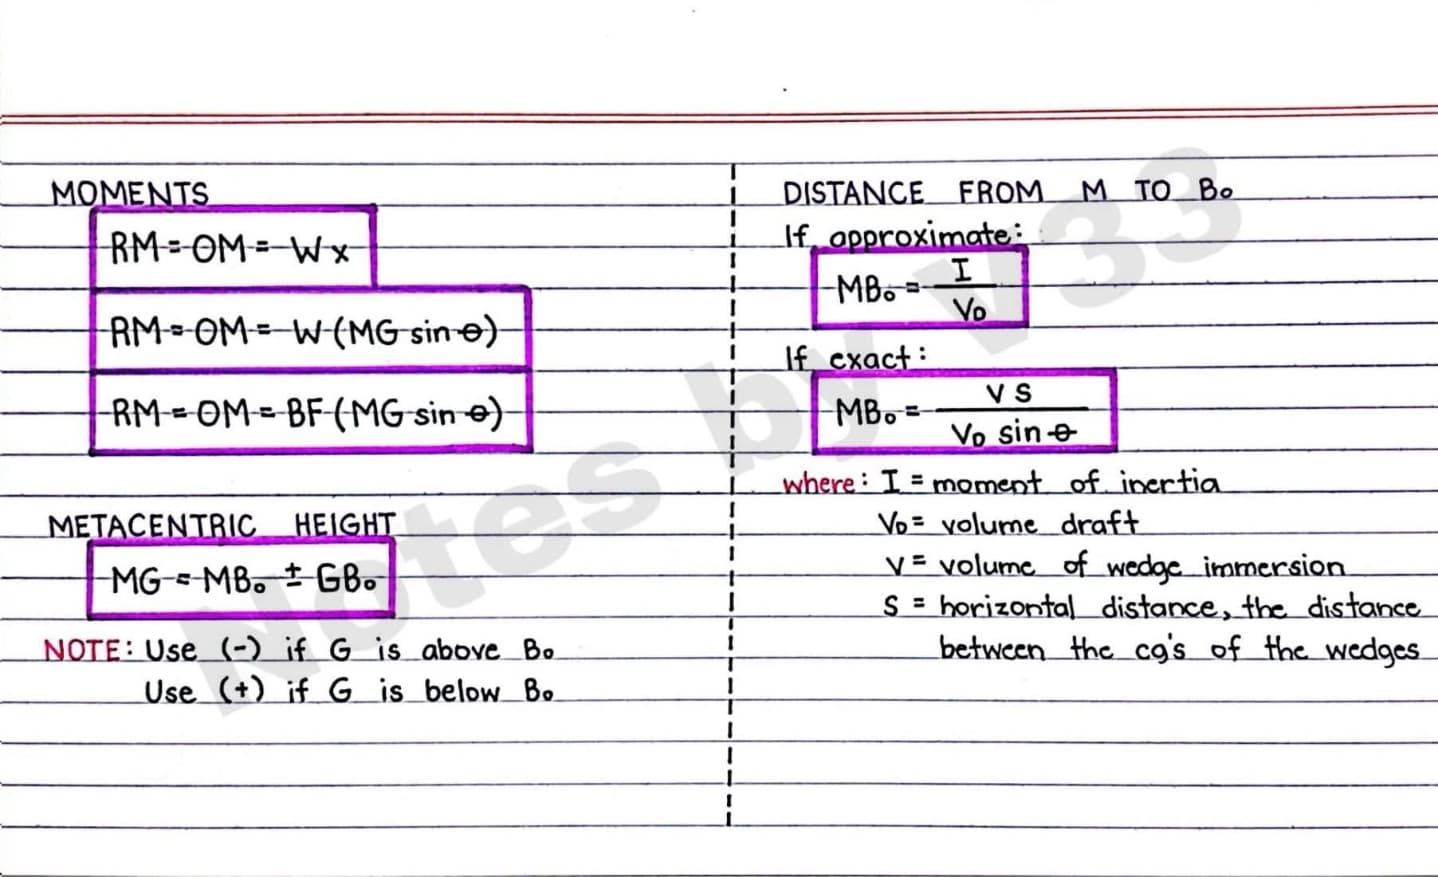 MOMENTS
RM = OM = Wx
RM = OM = W (MG sin θ)
RM = OM = BF (MG sin θ)
METACENTRIC HEIGHT
MG = MB₀ ± GB₀
NOTE: Use (-) if G is above B₀
Use (+) if G is below B₀
DISTANCE FROM M TO B₀
If approximate:
MB₀ = I / V_D
If exact:
MB₀ = v s / V_D sin θ
where: I = moment of inertia
V_D = volume draft
v = volume of wedge immersion
S = horizontal distance, the distance
between the cg's of the wedges
Notes by v33